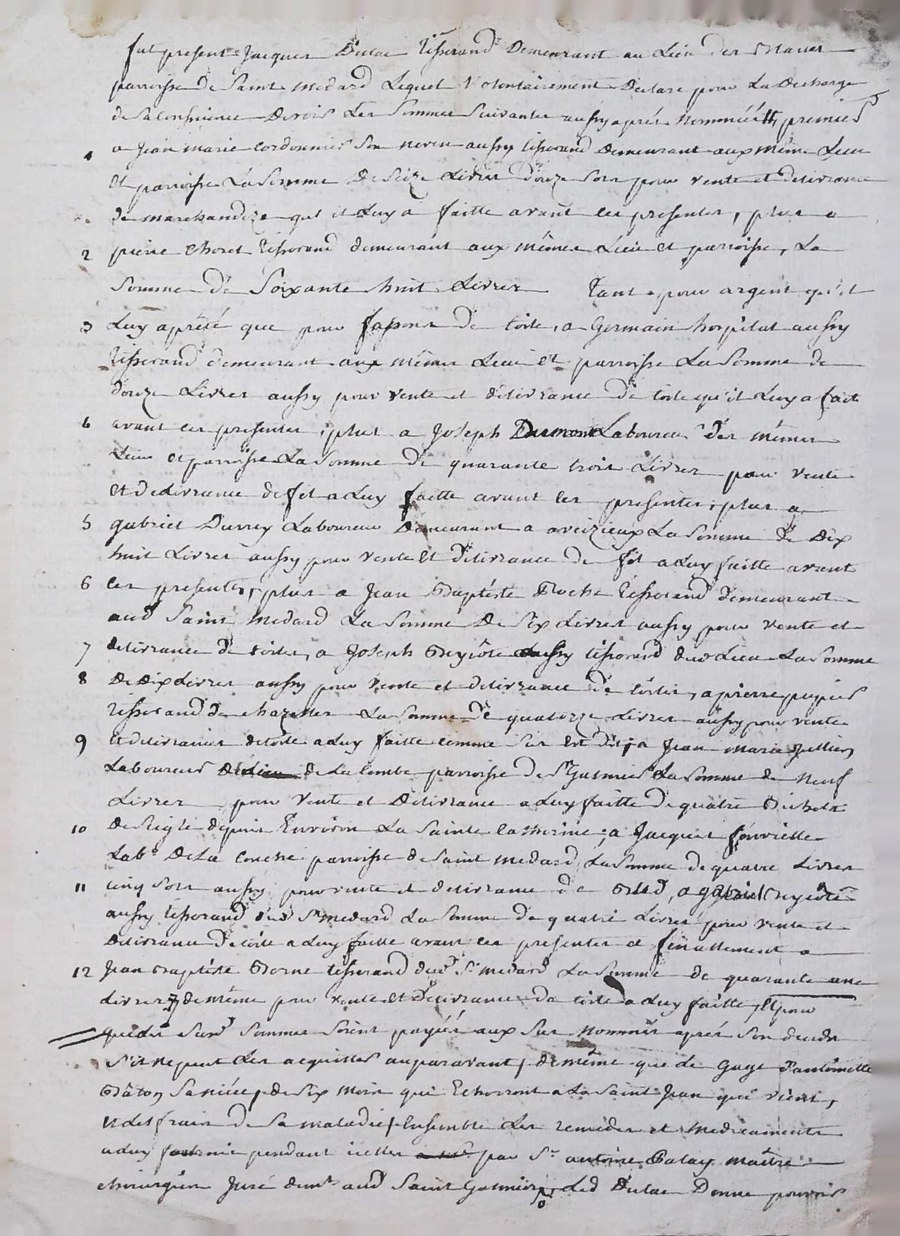 fut present Jacques Dulac tisserand demeurant au Lieu des
parroisse de Saint medard Lequel volontairement Declare pour La Decharge
de Sa Consience Devoir Les Sommes Suivantes aussy aprés Nommeés premier
1 a Jean marie cordonnier Son neveu aussy tisserand demeurant aux même Lieu
et parroisse La Somme De Seize Livres Douze Sols pour vente et delivrance
de marchandize qu'il Luy a faitte avant les presentes, plus a
2 pierre Choret tisserand demeurant aux mêmes Lieu et parroisse, La
Somme de Soixante huit Livres Tant pour argent qu'il
3 Luy a prêté que pour fassons de toile, a Germain hospital aussy
tisserand demeurant aux mêmes Lieu et parroisse La Somme de
douze Livres aussy pour vente et délivrance de toile qu'il Luy a fait
4 avant ces presentes, plus a Joseph Dumont Laboureur des mêmes
Lieu et parroisse La Somme de quarante trois Livres pour vente
et delivrance de a Luy faitte avant les presentes, plus a
5 gabriel Durrey Laboureur Demeurant a aveizieux La Somme de Dix
huit Livres aussy pour vente et délivrance de a Luy faitte avant
6 les presentes, plus a Jean Baptiste Roche tisserand demeurant
aud Saint medard La Somme De Six Livres aussy pour vente et
7 delivrance de toiles, a Joseph aussy tisserand dud Lieu La Somme
8 De Dix Livres aussy pour vente et delivrance de toiles, a pierre
tisserand de chazelles La Somme de quatorze Livres aussy pour vente
9 et delivrance de toile a Luy faitte comme Sus est dit, a Jean Marie Jullien
Laboureur de La Combe parroisse de St Galmier La Somme de Neuf
Livres pour vente et Délivrance a Luy faitte de quatre Bichets
10 De Seigle depuis Environ La Sainte Catherine, a Jacques
Labr. De La Conche parroisse de Saint medard, La Somme de quatre Livres
11 cinq Sols aussy pour vente et delivrance de Bled, a gabriel
aussy tisserand dud St medard La Somme de quatre Livres pour vente et
Delivrance de toile a Luy faitte avant les presentes et finallement a
12 Jean Baptiste Borne tisserand dud St medard La Somme de quarante une
Livres de même pour vente et Delivrance de toile a Luy faitte, Et pour
que les Susd Sommes Soient payées aux Sus Nommés aprés Son deceds
S'il ne peut Les acquitter auparavant, de même que Le gage d'antoinette
Sa Niéce, de Six mois qui Echerront a La Saint Jean qui vient,
et des frais de Sa maladie, Ensemble Les remédes et medicaments
a Luy fournit pendant icelle par Sr antoine Palay maître
chirurgien Juré demt aud Saint Galmier, Led Dulac Donne pouvoir